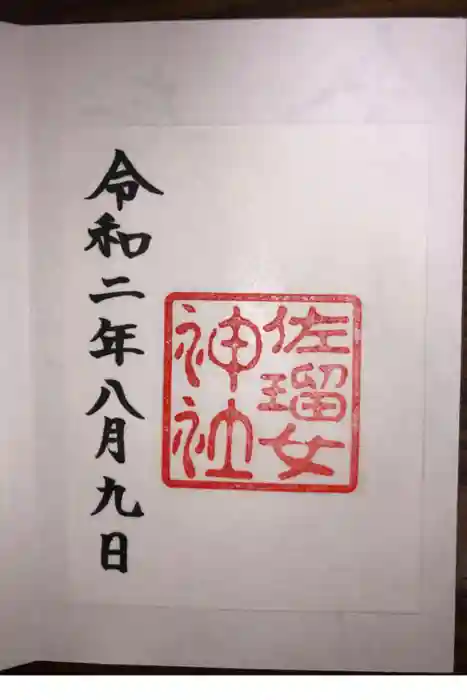 佐瑠女
神社
令和二年八月九日